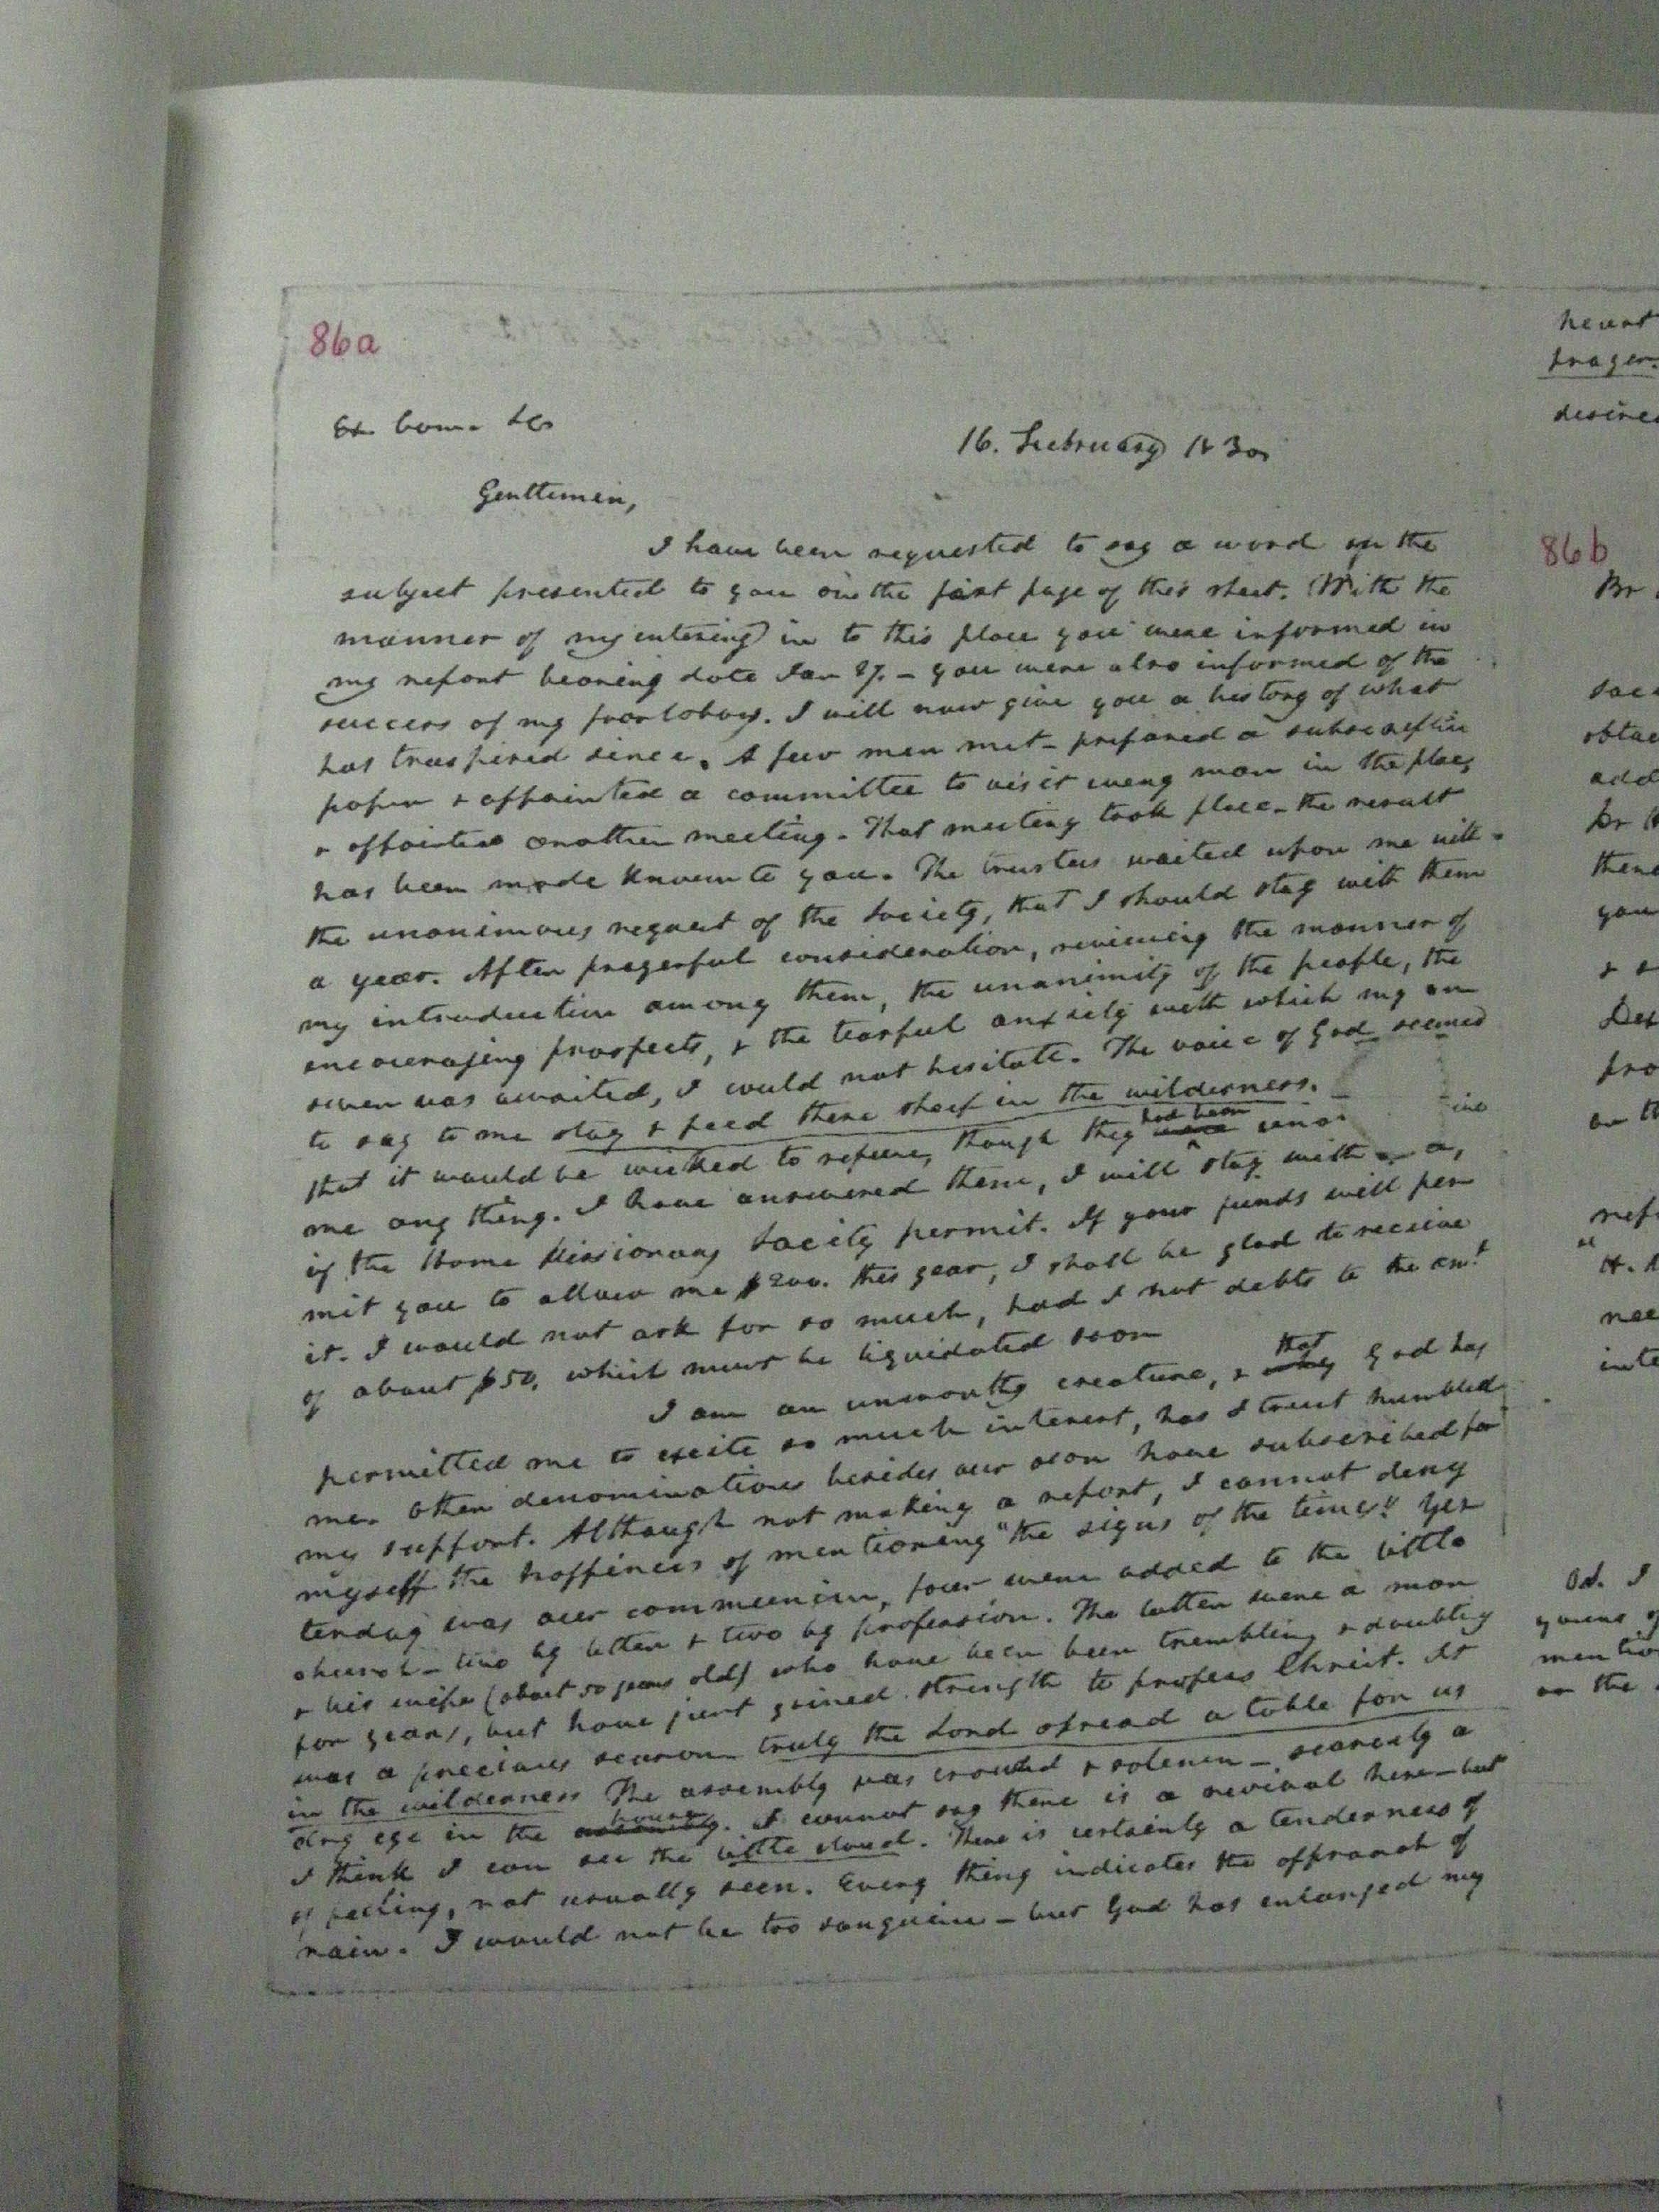 86a
Ex. Com. &c
16. Feebruary 1830
Gentlemen,
I have been requested to say a word on the
subject presented to you on the first page of this sheet. With the
manner of my entering in to this place you were informed in
my report bearing date Jan 27. - you were also informed of the
success of my poor labors. I will now give you a history of what
has traspired since. A few men met - prepared a subscription
paper & appointed a committee to visit every man in the place,
& appointed another meeting. That meeting took place - the result
has been made known to you. The trustees waited upon me with
the unanimous request of the Society, that I should stay with them
a year. After prayerful consideration, reviewing the manner of
my introduction among them, the unanimity of the people, the
encouraging prospects, & the tearful anxiety with which my an
swer was awaited, I could not hesitate. The voice of God seemed
to say to me stay & feed these sheep in the wilderness.
that it would be wicked to refuse, though they had been
me any thing. I have answered them, I will stay with
if the Home Missionary Society permit. If your funds will per
mit you to allow me $200. this year, I shall be glad to receive
it. I would not ask for so much, had I not debts to the amt
of about $50, which must be liquidated soon
I am an unworthy creature, & that God has
permitted me to excite so much interest, has I trust humbled
me. Other denominations besides our own have subscribed for
my support. Although not making a report, I cannot deny
myself the happiness of mentioning "the signs of the times." Yes
terday was our communion, four were added to the little
church - two by letter & two by profession. The latter were a man
& his wife (about 50 years old) who have been been trembling & doubting
for years, but have just gained strength to profess Christ. It
was a precious season - truly the Lord spread a table for us
in the wilderness The assembly was crowded & solemn - scarcely a
dry eye in the house. I cannot say there is a revival here - but
I think I can see the little cloud. There is certainly a tenderness of
of feeling, not usually seen. Every thing indicates the appraach of
rain. I would not be too sanguine - but God has enlarged my
heart
prayer.
desire
86b
Br